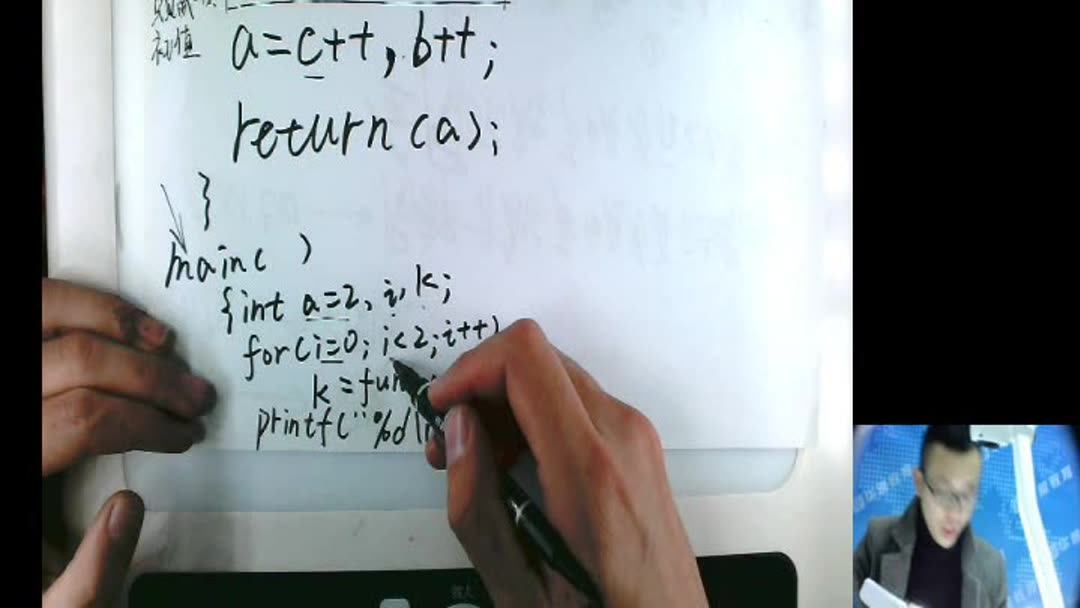 初值
a=c++, b++;
return(a);
}
main( )
{int a=2, i, k;
for(i=0; i<2; i++)
k=fun
printf("%d\